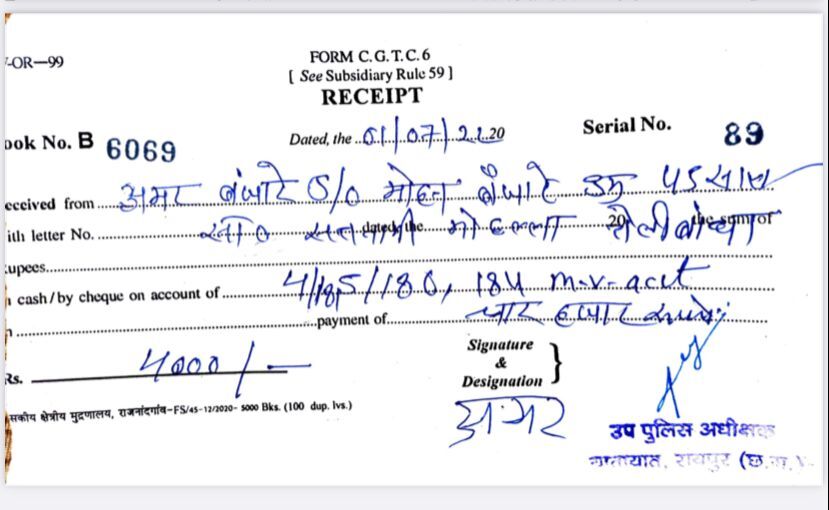 -OR—99
FORM C.G.T.C.6
[ See Subsidiary Rule 59 ]
RECEIPT
ook No. B 6069
Dated, the 01/07/21 20
Serial No. 89
eceived from अमर बंजारे S/o मोहन बंजारे उम्र 45 साल
ith letter No. सतनामी dated the मोहल्ला 20 तेलीबांधा the sum of
upees
cash/by cheque on account of 4/185/180, 184 m.v. act
payment of चार हजार रूपये
Rs. 4000/-
Signature
&
Designation
अमर
सकीय क्षेत्रीय मुद्रणालय, राजनांदगाँव-FS/45-12/2020- 5000 Bks. (100 dup. lvs.)
उप पुलिस अधीक्षक
यातायात, रायपुर (छ.ग.)